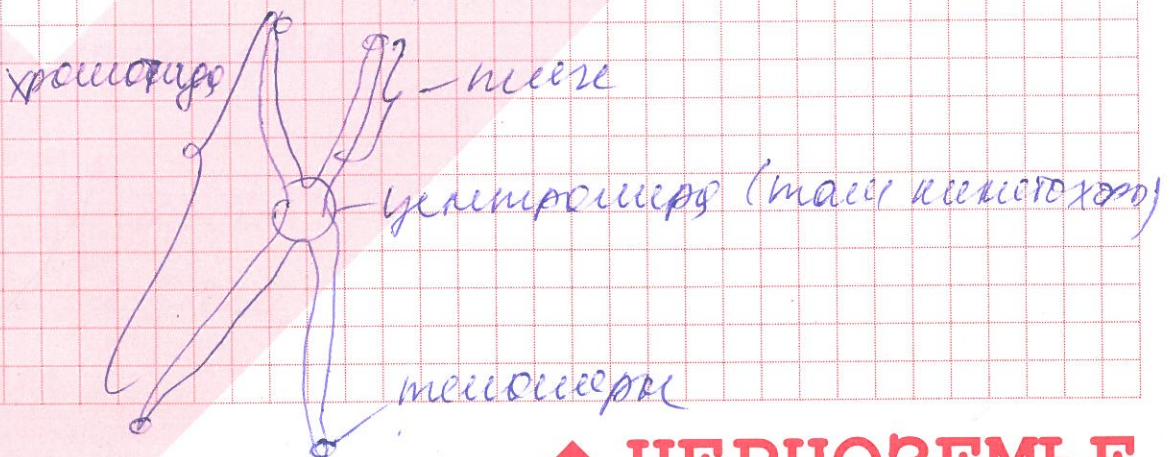 хроматида
плече
центромера (там кинетохор)
теломеры
ЧЕРНОЗЕМЬЕ